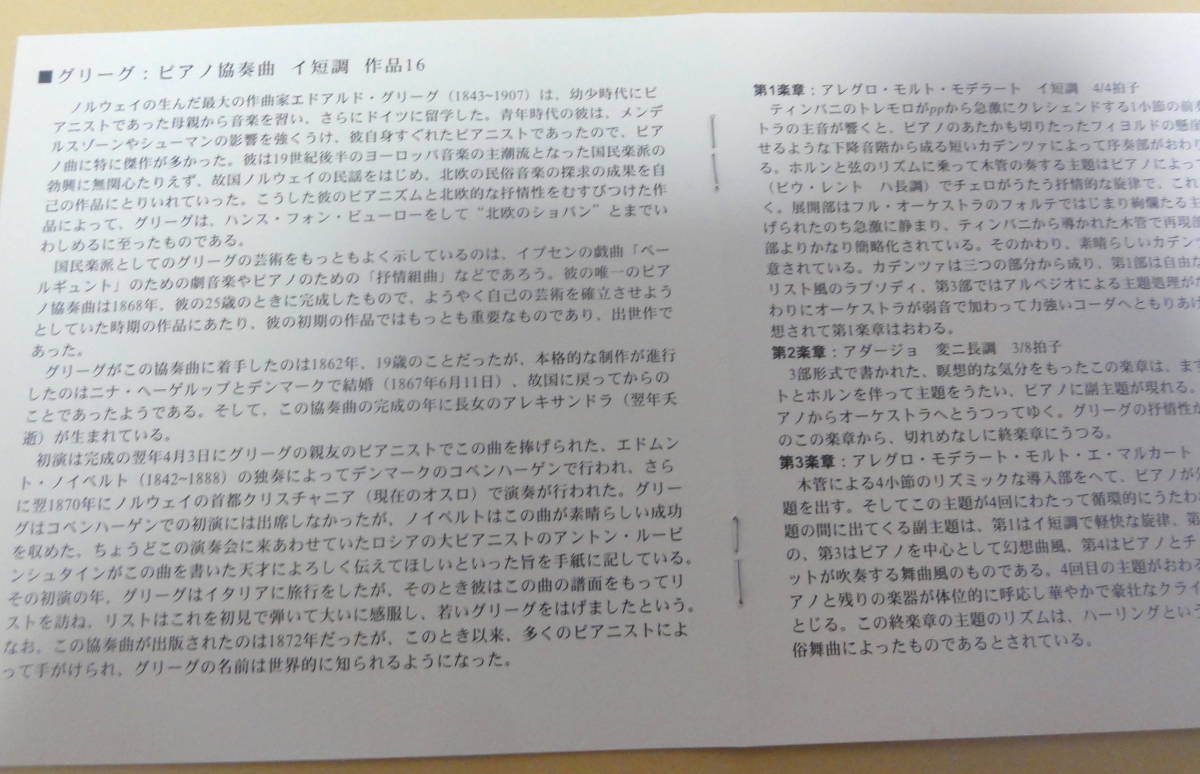 ■グリーグ：ピアノ協奏曲 イ短調 作品16
ノルウェイの生んだ最大の作曲家エドアルド・グリーグ（1843~1907）は、幼少時代にピ
アニストであった母親から音楽を習い、さらにドイツに留学した。青年時代の彼は、メンデ
ルスゾーンやシューマンの影響を強くうけ、彼自身すぐれたピアニストであったので、ピア
ノ曲に特に傑作が多かった。彼は19世紀後半のヨーロッパ音楽の主潮流となった国民楽派の
勃興に無関心たりえず、故国ノルウェイの民謡をはじめ、北欧の民俗音楽の探求の成果を自
己の作品にとりいれていった。こうした彼のピアニズムと北欧的な抒情性をむすびつけた作
品によって、グリーグは、ハンス・フォン・ビューローをして“北欧のショパン”とまでい
わしめるに至ったものである。
国民楽派としてのグリーグの芸術をもっともよく示しているのは、イプセンの戯曲「ペー
ルギュント」のための劇音楽やピアノのための「抒情組曲」などであろう。彼の唯一のピア
ノ協奏曲は1868年、彼の25歳のときに完成したもので、ようやく自己の芸術を確立させよう
としていた時期の作品にあたり、彼の初期の作品ではもっとも重要なものであり、出世作で
あった。
グリーグがこの協奏曲に着手したのは1862年、19歳のことだったが、本格的な制作が進行
したのはニナ・ヘーゲルップとデンマークで結婚（1867年6月11日）、故国に戻ってからの
ことであったようである。そして、この協奏曲の完成の年に長女のアレキサンドラ（翌年夭
逝）が生まれている。
初演は完成の翌年4月3日にグリーグの親友のピアニストでこの曲を捧げられた、エドムン
ト・ノイペルト（1842~1888）の独奏によってデンマークのコペンハーゲンで行われ、さら
に翌1870年にノルウェイの首都クリスチャニア（現在のオスロ）で演奏が行われた。グリー
グはコペンハーゲンでの初演には出席しなかったが、ノイペルトはこの曲が素晴らしい成功
を収めた、ちょうどこの演奏会に来あわせていたロシアの大ピアニストのアントン・ルービ
ンシュタインがこの曲を書いた天才によろしく伝えてほしいといった旨を手紙に記している。
その初演の年、グリーグはイタリアに旅行をしたが、そのとき彼はこの曲の譜面をもってリ
ストを訪ね、リストはこれを初見で弾いて大いに感服し、若いグリーグをはげましたという。
なお、この協奏曲が出版されたのは1872年だったが、このとき以来、多くのピアニストによ
って手がけられ、グリーグの名前は世界的に知られるようになった。
第1楽章：アレグロ・モルト・モデラート イ短調 4/4拍子
ティンパニのトレモロがppから急激にクレシェンドする1小節の前
トラの主音が響くと、ピアノのあたかも切りたったフィヨルドの懸崖
せるような下降音階から成る短いカデンツァによって序奏部がおわり
る。ホルンと弦のリズムに乗って木管の奏する主題はピアノによっ
（ピウ・レント ハ長調）でチェロがうたう抒情的な旋律で、これ
く。展開部はフル・オーケストラのフォルテではじまり絢爛たる主
げられたのち急激に静まり、ティンパニから導かれた木管で再現部
部よりかなり簡略化されている。そのかわり、素晴らしいカデン
意されている。カデンツァは三つの部分から成り、第1部は自由な
リスト風のラプソディ、第3部ではアルペジオによる主題処理が
わりにオーケストラが弱音で加わって力強いコーダへともりあげ
想されて第1楽章はおわる。
第2楽章：アダージョ 変ニ長調 3/8拍子
3部形式で書かれた、瞑想的な気分をもったこの楽章は、まず
トとホルンを伴って主題をうたい、ピアノに副主題が現れる。
アノからオーケストラへとうつってゆく。グリーグの抒情性が
のこの楽章から、切れめなしに終楽章にうつる。
第3楽章：アレグロ・モデラート・モルト・エ・マルカート
木管による4小節のリズミックな導入部をへて、ピアノが
題を出す。そしてこの主題が4回にわたって循環的にうたわ
題の間に出てくる副主題は、第1はイ短調で軽快な旋律、第
の、第3はピアノを中心として幻想曲風、第4はピアノとチ
ットが吹奏する舞曲風のものである。4回目の主題がおわる
アノと残りの楽器が体位的に呼応し華やかで豪壮なクライ
とじる。この終楽章の主題のリズムは、ハーリングとい
俗舞曲によったものであるとされている。